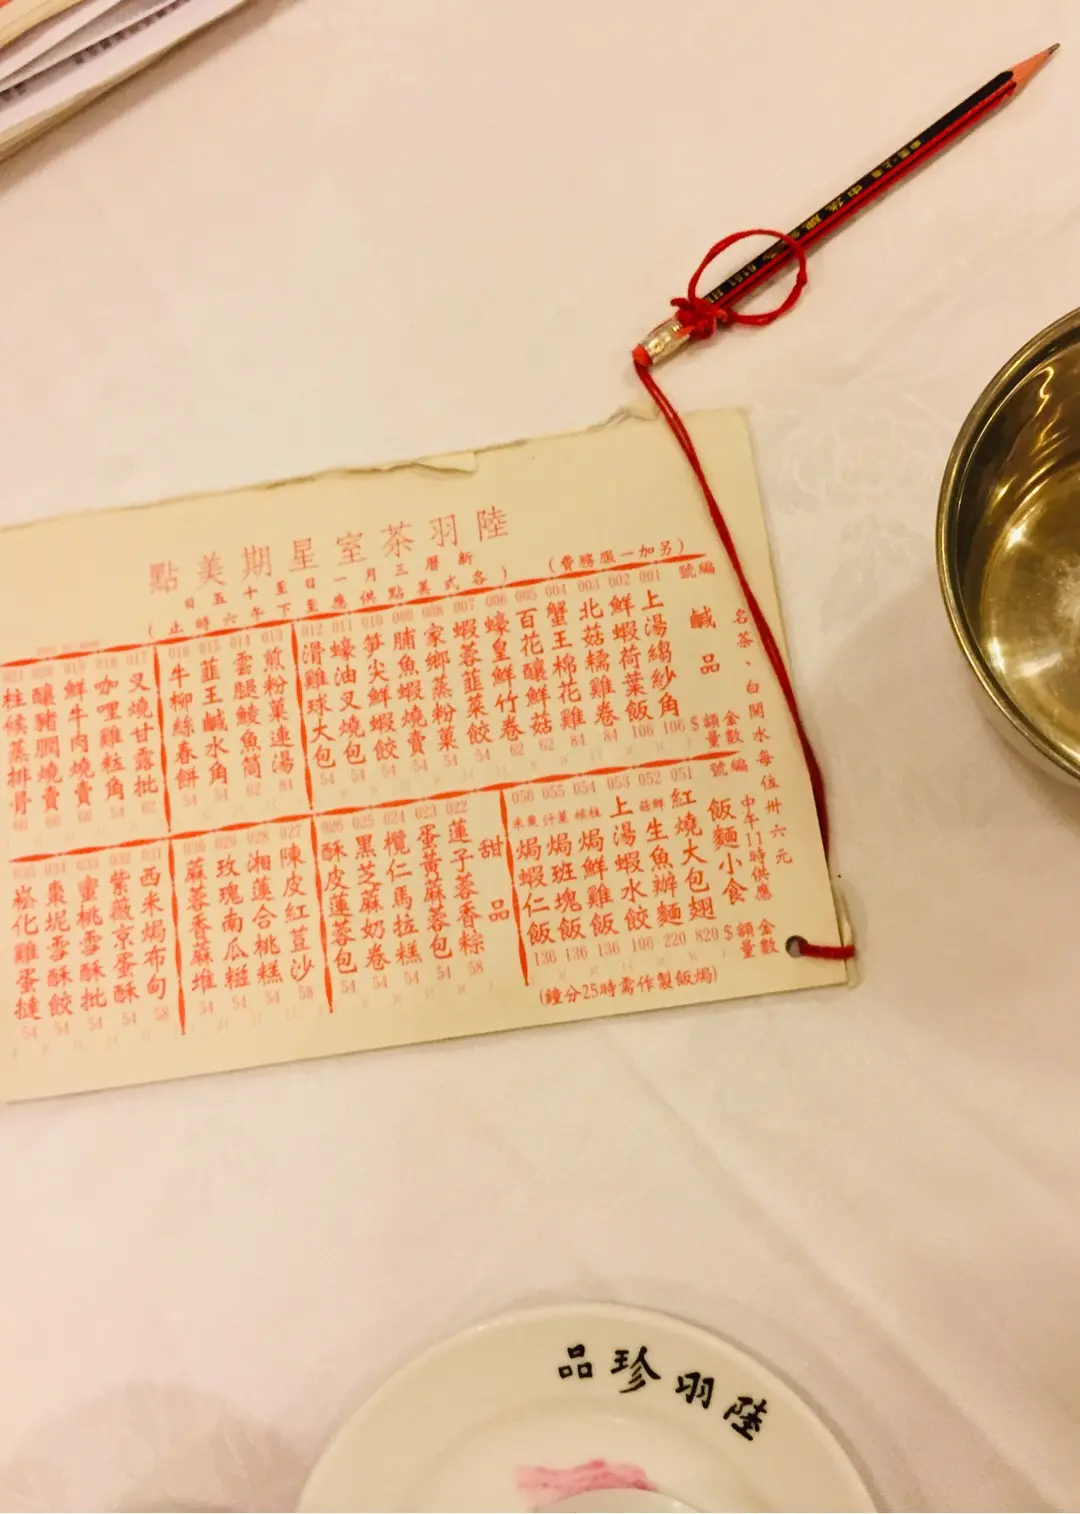 陸羽茶室星期美點
新曆三月一日至十五日
(各式美點供應至下午六時止)
(另加一服務費)
名茶、白開水每位卅六元
編號
鹹品
金額
數量
$
001 上湯縐紗角 106
002 鮮蝦荷葉飯 106
003 北菇糯雞卷 84
004 蟹王棉花雞 84
005 百花釀鮮菇 62
006 蠔皇鮮竹卷 62
007 蝦蓉韮菜餃 54
008 家鄉蒸粉菓 54
009 脯魚蝦燒賣 54
010 笋尖鮮蝦餃 54
011 蠔油叉燒包 54
012 滑雞球大包 54
013 煎粉菓連湯 84
014 雲腿鯪魚筒 62
015 韮王鹹水角 54
016 牛柳絲春餅 54
017 叉燒甘露批 62
018 咖哩雞粒角 54
019 鮮牛肉燒賣
020 釀豬膶燒賣 60
021 柱候蒸排骨 60
編號
飯麵小食
中午11時供應
金額
數量
$
051 紅燒大包翅 820
052 鮮菇生魚辦麵 220
053 上湯蝦水餃 106
054 焗鮮雞飯 136
055 焗班塊飯 136
056 焗蝦仁飯 136
(焗飯製作需時25分鐘)
甜品
022 蓮子蓉香粽 58
023 蛋黃蔴蓉包 54
024 欖仁馬拉糕 54
025 黑芝蔴奶卷 54
026 酥皮蓮蓉包 54
027 陳皮紅荳沙 58
028 湘蓮合桃糕 54
029 玫瑰南瓜糍 54
030 蔴蓉香蔴堆 54
031 西米焗布甸 58
032 紫薇京蛋酥 54
033 蜜桃雪酥批 54
034 棗坭雪酥餃 54
035 崧化雞蛋撻 54
陸羽珍品